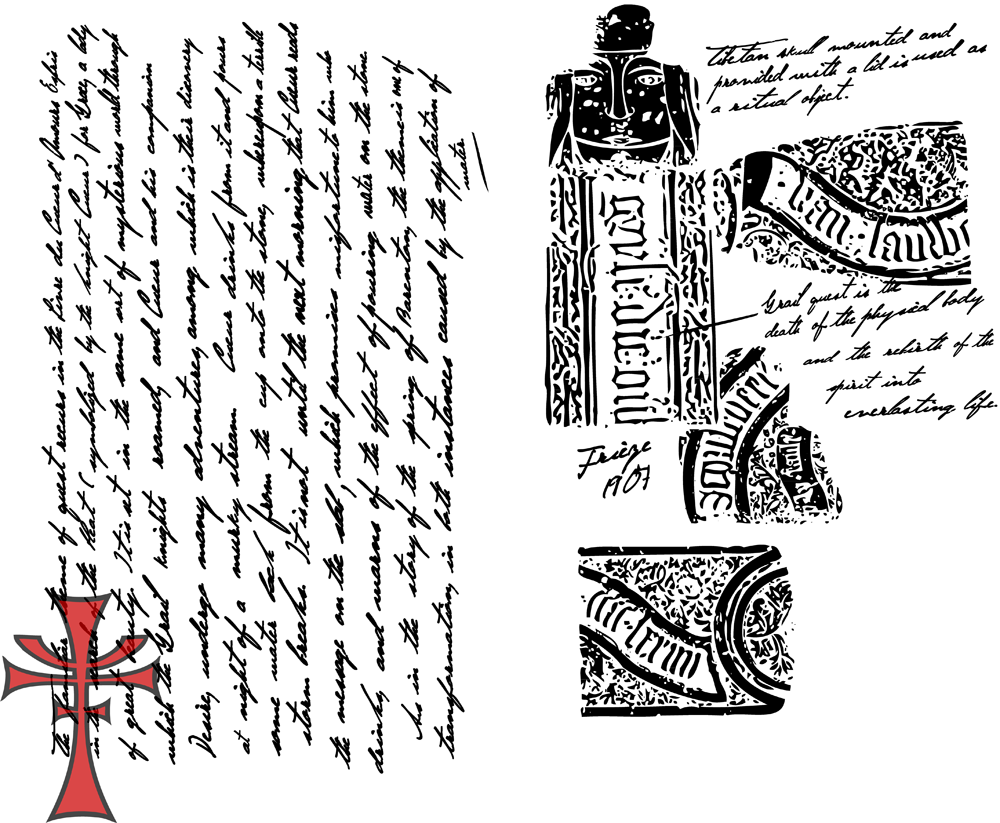 The Tannhäuser theme of quest recurs in the Livre du Cuer d'Amours Espris
in the search of the Heart (symbolized by the knight Cuer) for Grace, a lady
of great beauty. It is set in the same sort of mysterious world through
which the Grail knights roamed, and Cuer and his companion
Desire, undergo many adventures, among which is their discovery
at night of a murky stream. Cuer drinks from it and pours
some water back from the cup onto the stone, whereupon a terrible
storm breaks. It is not until the next morning, that Cuer reads
the message on the slab, which promises misfortune to him who
drinks, and warns of the effect of pouring water on the stone.
As in the story of the spring of Barenton, the theme is one of
transformation, in both instances caused by the application of
water.
Tibetan skull mounted and
provided with a lid is used as
a ritual object.
Grail quest is the
death of the physical body
and the rebirth of the
spirit into
everlasting life.
Frieze
1907